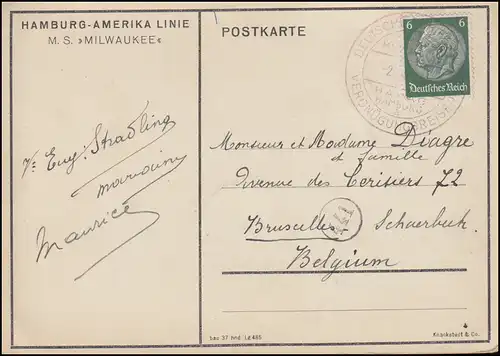 HAMBURG-AMERIKA LINIE
M. S. »MILWAUKEE«
POSTKARTE
DEUTSCHE
HAMBURG
VERGNÜGUNGSREISEN
6 6
Deutsches Reich
Eug. Stradling
Maurice
Monsieur et Madame Diagre
et famille
Avenue des Cerisiers 72
Bruxelles Schaerbeek
Belgium
Leo 37 hnd Lg 485
Knackstedt & Co.